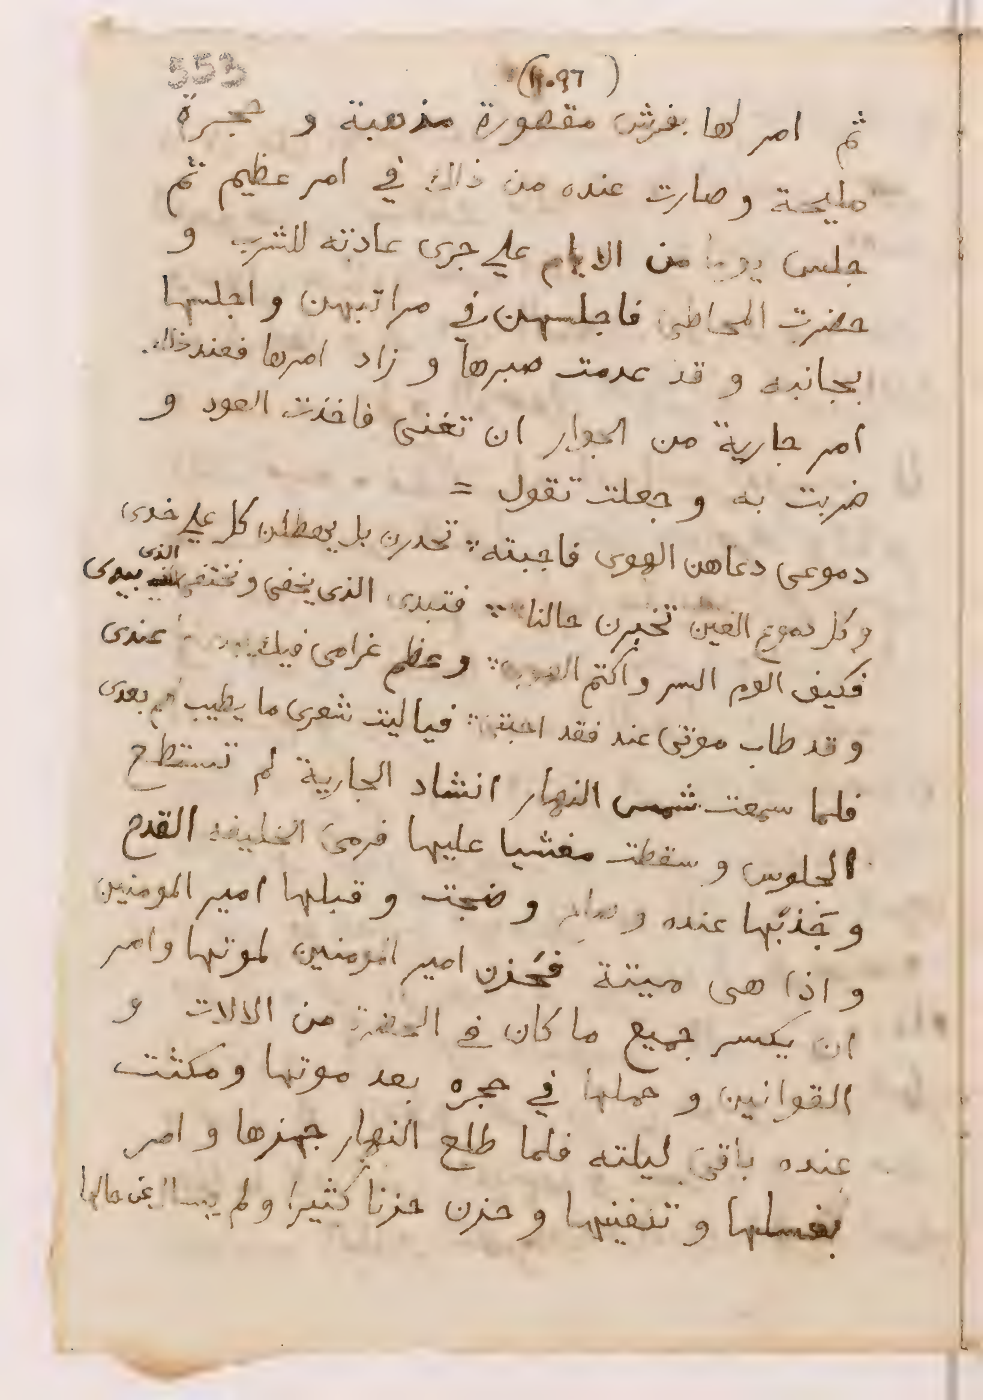 553
(١٠٩٦)
ثم امر لها بفرش مقصورة مذهبة و حجرة
مليحة و صارت عنده من ذلك في امر عظيم ثم
جلس يوما من الايام علي جرى عادته للشرب و
حضرت المحاظى فاجلسهن في مراتبهن و اجلسها
بجانبه و قد عدمت صبرها و زاد امرها فعند ذلك
امر جارية من الجوار ان تغنى فاخذت العود و
ضربت به و جعلت تقول =
دموعى دعاهن الهوى فاجبته ؞ تحدرن بل يهطلن كل على خدى
و كل دموع العين تخبرن حالنا ؞ فتبدى الذى يخفى و تختفى الذى يبدى
فكيف اروم السر و اكتم ؞ و عظم غرامى فيك عندى
و قد طاب موتى عند فقد احبتى ؞ فيا ليت شعرى ما يطيب لهم بعدى
فلما سمعت شمس النهار انشاد الجارية لم تستطع
الجلوس و سقطت مغشيا عليها فرمى الخليفه القدح
و جذبها عنده و صاح و ضجت و قبلها امير المومنين
و اذا هى ميتة فحزن امير المومنين لموتها و امر
ان يكسر جميع ما كان في الحضرة من الالات و
القوانين و حملها في حجره بعد موتها و مكثت
عنده باقى ليلته فلما طلع النهار جهزها و امر
بغسلها و تكفينها و حزن حزنا كثيرا و لم يسال عن حالها